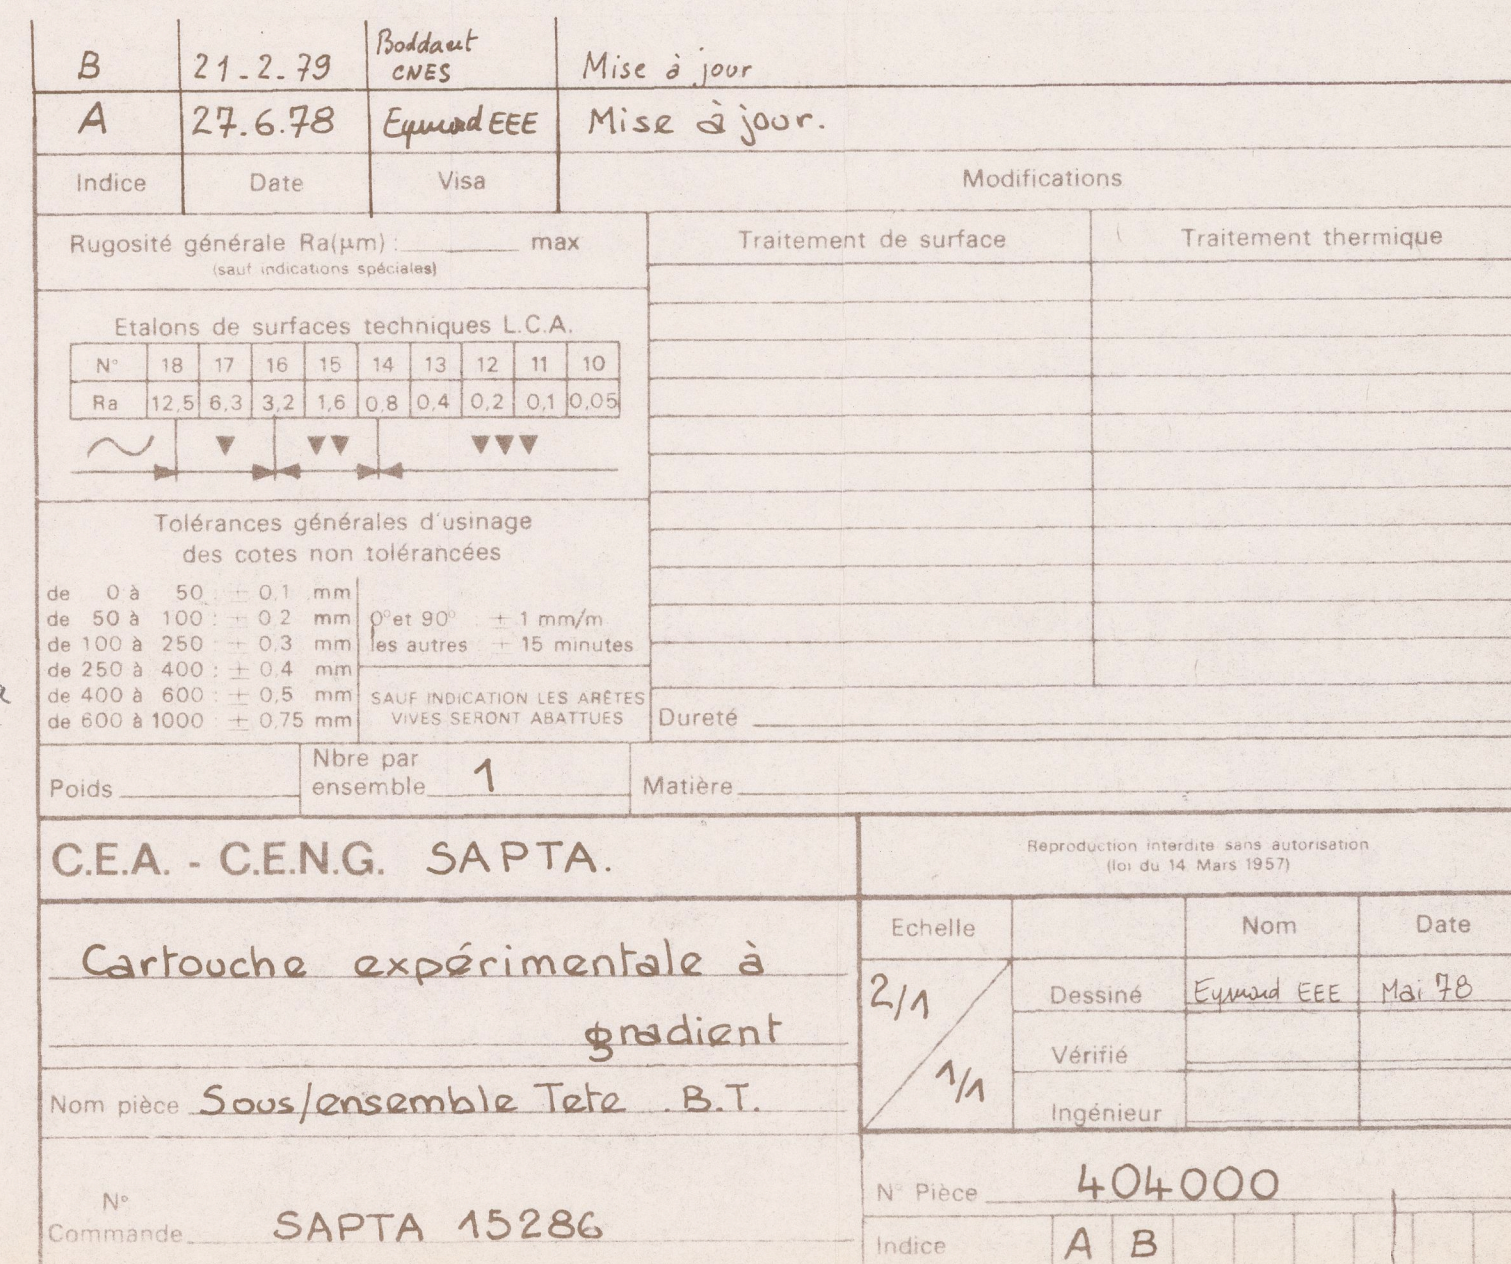 B 21-2-79 Boddaut CNES Mise à jour
A 27.6.78 Eymard EEE Mise à jour.
Indice Date Visa Modifications
Rugosité générale Ra(µm) : max
(sauf indications spéciales)
Traitement de surface Traitement thermique
Etalons de surfaces techniques L.C.A.
N° 18 17 16 15 14 13 12 11 10
Ra 12,5 6,3 3,2 1,6 0,8 0,4 0,2 0,1 0,05
Tolérances générales d'usinage
des cotes non tolérancées
de 0 à 50 : ± 0,1 mm
de 50 à 100 : ± 0 2 mm
de 100 à 250 ± 0,3 mm
de 250 à 400 : ± 0,4 mm
de 400 à 600 : ± 0,5 mm
de 600 à 1000 : ± 0,75 mm
0° et 90° : ± 1 mm/m
les autres ± 15 minutes
SAUF INDICATION LES ARÊTES
VIVES SERONT ABATTUES
Dureté
Poids
Nbre par
ensemble 1
Matière
C.E.A. - C.E.N.G. SAPTA.
Reproduction interdite sans autorisation
(loi du 14 Mars 1957)
Cartouche expérimentale à
gradient
Nom pièce Sous/ensemble Tete B.T.
N°
Commande SAPTA 15286
Echelle Nom Date
2/1
1/1
Dessiné Eymard EEE Mai 78
Vérifié
Ingénieur
N° Pièce 404000
Indice A B